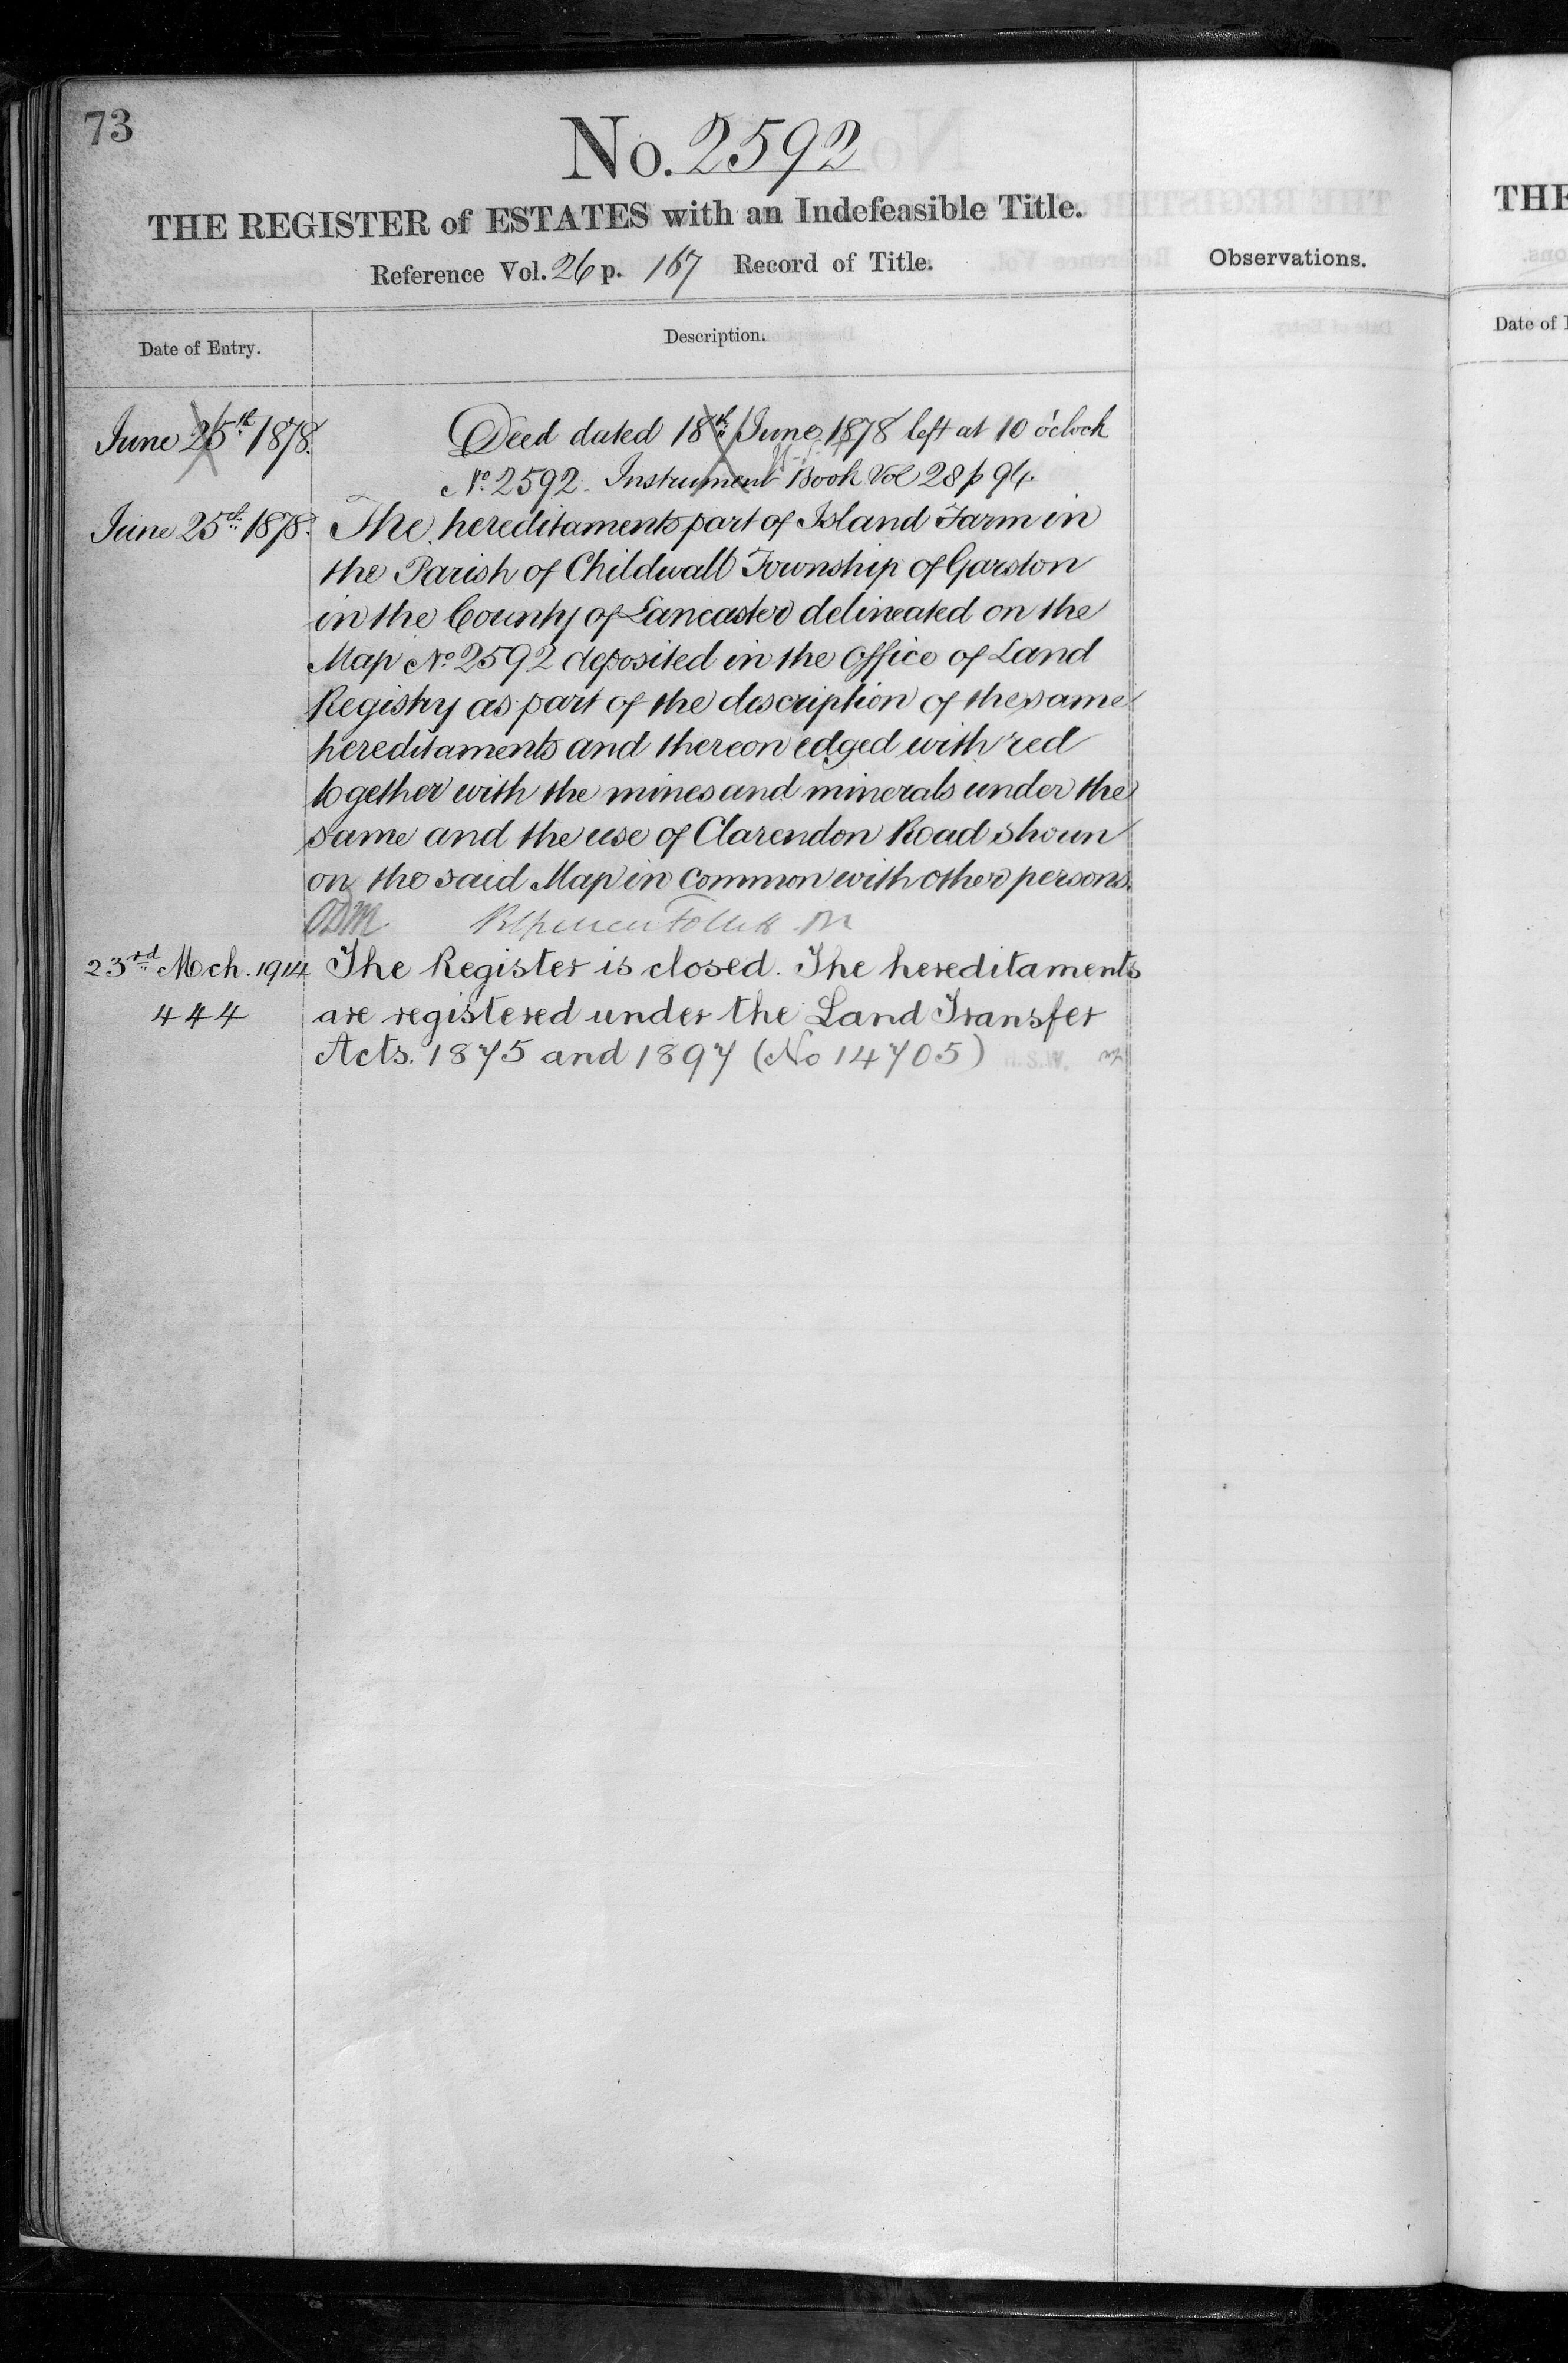 73
No. 2592
THE REGISTER of ESTATES with an Indefeasible Title.
Reference Vol. 26 p. 167 Record of Title.
Observations.
Date of Entry.
Description.
June 25th 1878.
Deed dated 18th June 1878 left at 10 o'clock
No. 2592. Instrument Book Vol 28 p 94.
June 25th 1878.
The hereditaments part of Island Farm in
the Parish of Childwall Township of Garston
in the County of Lancaster delineated on the
Map No. 2592 deposited in the Office of Land
Registry as part of the description of the same
hereditaments and thereon edged with red
together with the mines and minerals under the
same and the use of Clarendon Road shown
on the said Map in common with other persons.
23rd Mch. 1914
444
The Register is closed. The hereditaments
are registered under the Land Transfer
Acts. 1875 and 1897 (No 14705)
THE
Date of